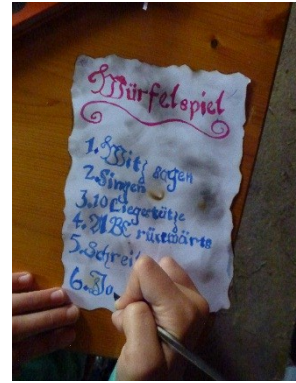 Würfelspiel
1. Witz sagen
2. Singen
3. 10 Liegestütze
4. ABC rückwärts
5. Schrei
6. Jo